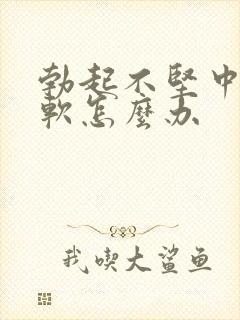 勃起不堅中
軟怎麼办
我喫大鲨鱼